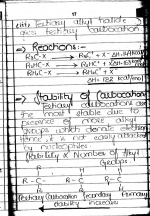 tertiary alkyl halide
gives tertiary carbocation
→ Reactions:-
R₃C-X → R₃C⁺ + X⁻
R₂HC-X → R₂HC⁺ + X⁻
RH₂C-X → RH₂C⁺ + X⁻
→ Stability of Carbocation
Tertiary carbocations are
the most stable due to
presence of more alkyl
groups which donate electrons
hence it is not easily attacked
by nucleophiles.
Stability ∝ Number of alkyl
groups
R R H
R - C - R - C R - C
R H H
Tertiary Carbocation Secondary Primary
Stability increases